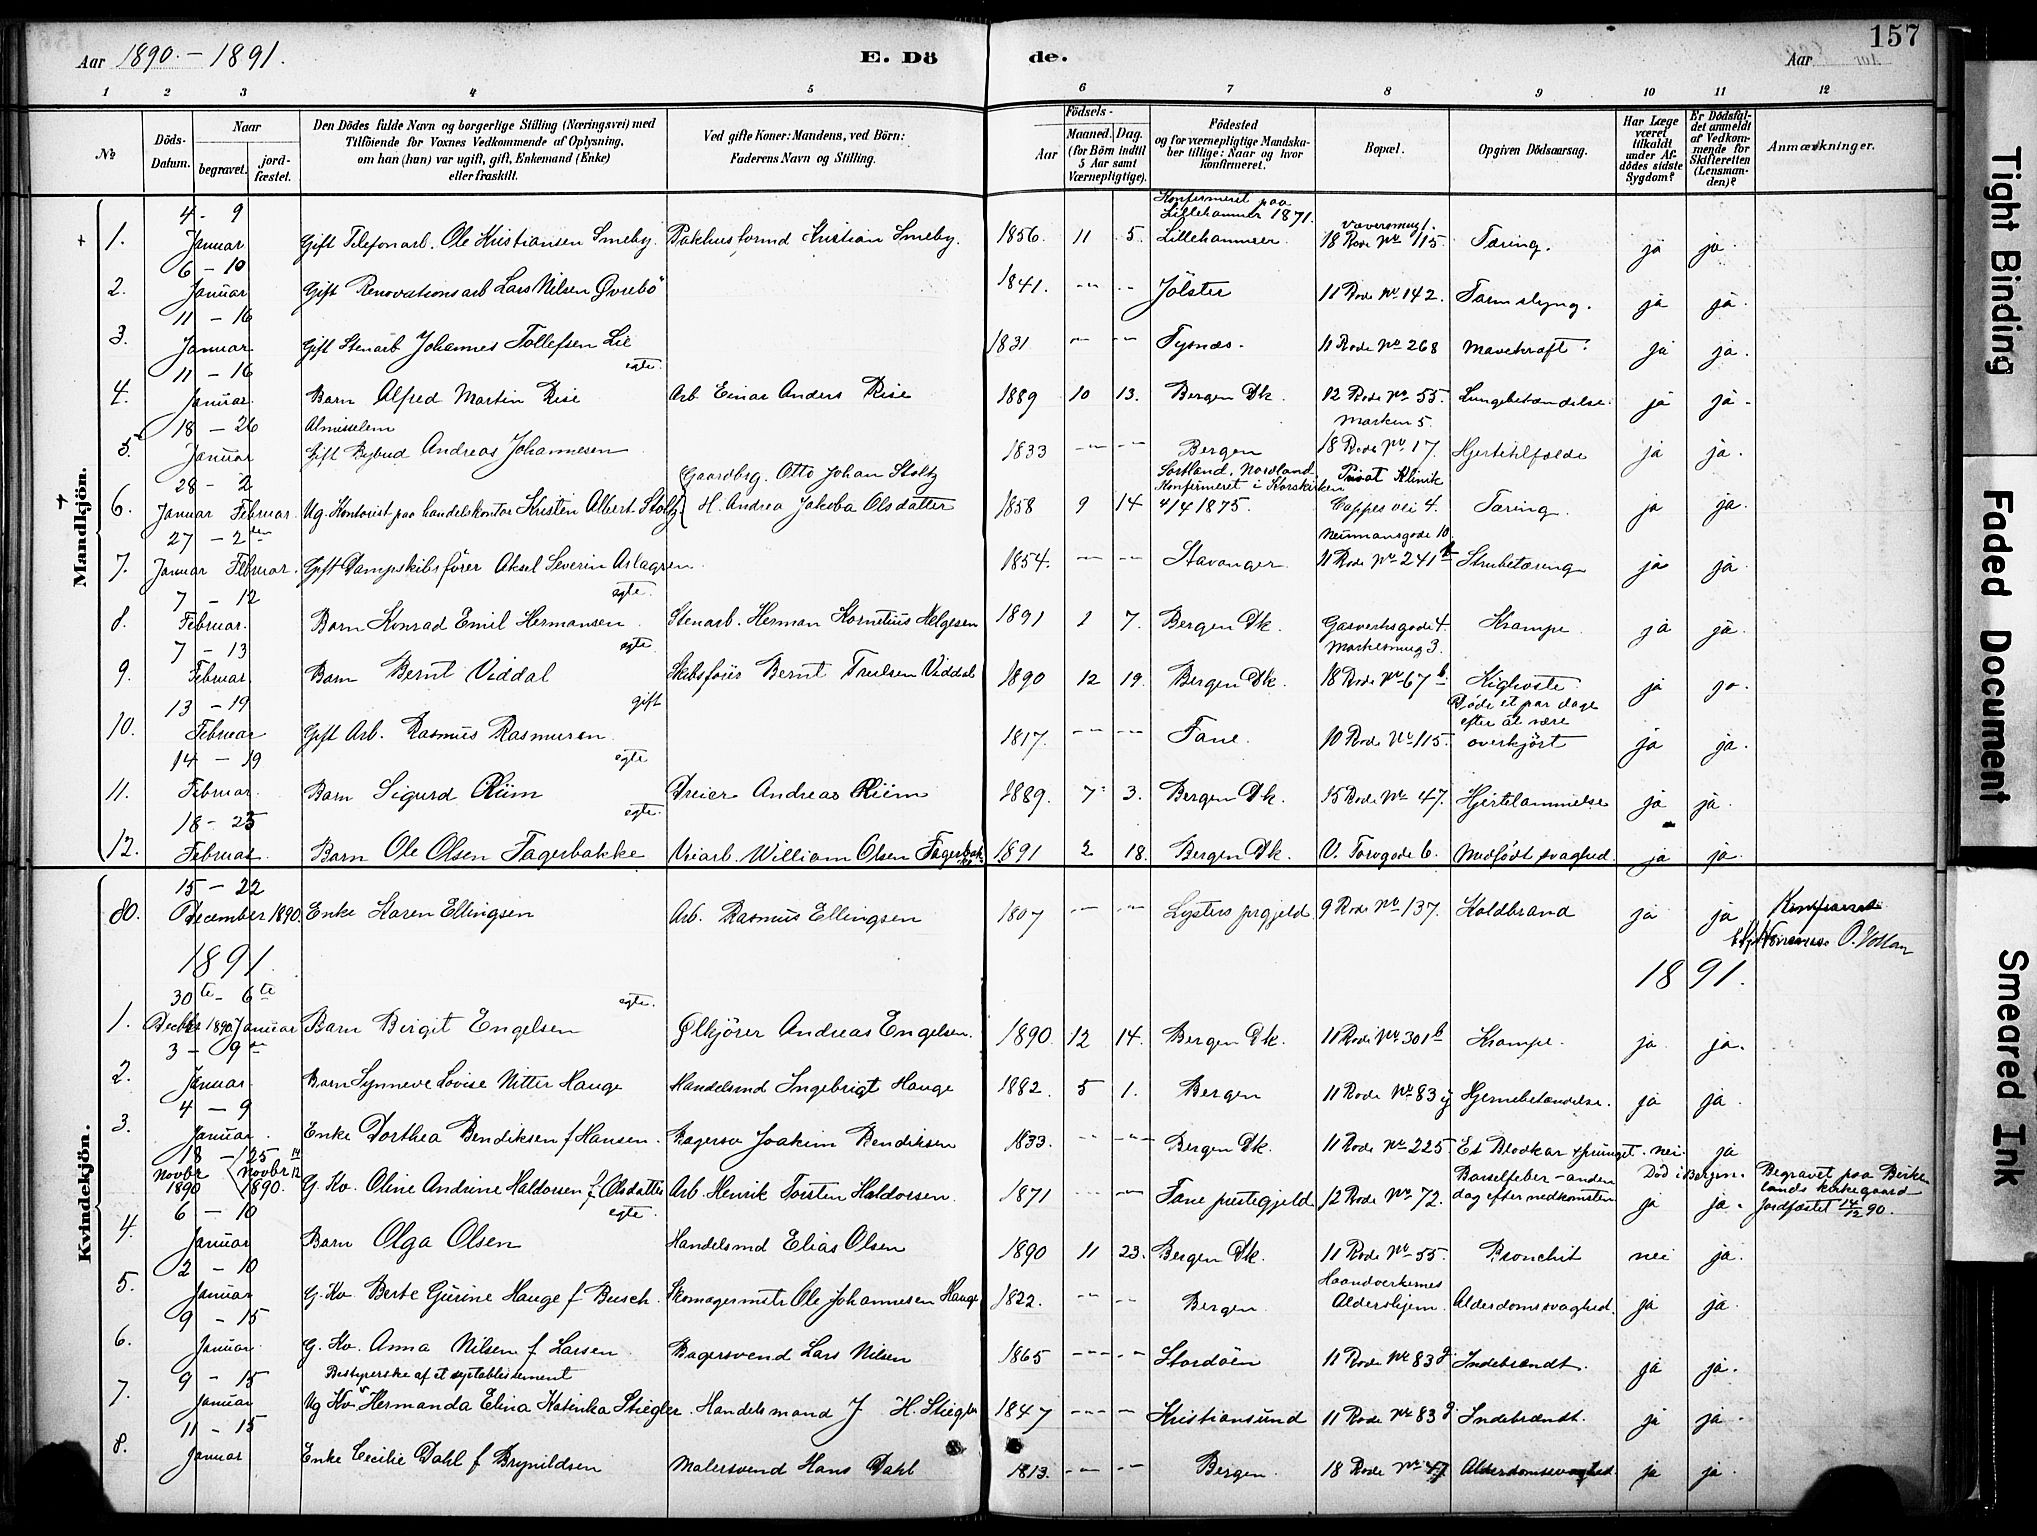 Aar 1890. – 1891.
E. Dö
de.
Aar
157
1 2 3 4 5 6 7 8 9 10 11 12
No
Döds-Datum.
Naar
begravet.
jord-fæstet.
Den Dödes fulde Navn og borgerlige Stilling (Næringsvei) med Tilföiende for Voxnes Vedkommende af Oplysning, om han (hun) var ugift, gift, Enkemand (Enke) eller fraskilt.
Ved gifte Koner: Mandens, ved Börn: Faderens Navn og Stilling.
Födsels-
Aar
Maaned. Dag.
(for Börn indtil 5 Aar samt Værnepligtige).
Födested og for værnepligtige Mandskaber tillige: Naar og hvor konfirmeret.
Bopæl.
Opgiven Dödsaarsag.
Har Læge været tilkaldt under Afdödes sidste Sygdom?
Er Dödsfaldet anmeldt af Vedkommende for Skifteretten (Lensmanden)?
Anmærkninger.
Mandkjön.
1. 4 - 9 Januar Gift Telefonarb. Ole Kristiansen Smeby. Pakhusformd Kristian Smeby. 1856. 11 5. Konfirmeret paa Lillehammer 1871. Lillehammer 18 Rode No 115 Tæring. ja ja
2. 6 - 10 Januar Gift Renovationsarb Lars Nilsen Øvrebö 1841. -- -- Jölster 11 Rode No 142. Tarmslyng. ja ja.
3. 11 - 16 Januar Gift Stenarb Johannes Tollefsen Lie 1831 -- -- Tysnæs. 11 Rode No 268 Mavekræft ja ja.
4. 11 - 16 Januar. Barn Alfred Martin Rise egte. Arb Einar Anders Rise 1889 10 13. Bergen Dk. 12 Rode No 55. Lungebetændelse ja ja.
5. 18 - 26 Januar Almisselem Gift Bybud Andreas Johannesen 1833 -- -- Bergen Marken 5. 18 Rode No 17. Hjertetilfælde ja ja.
6. 28 - 2 Januar Februar. Ug. Kontorist paa handelskontor Kristen Albert Stoltz Gaardbrg. Otto Johan Stoltz H. Andrea Jakoba Olsdatter 1858 9 14 Sortland, Nordland Konfirmeret i Korskirken 4/4 1875. Privat Klinik Cappes vei 4. Tæring ja ja.
7. 27 - 2den Januar Februar. Gift Dampskibsfører Aksel Severin Arlagren. 1854. -- -- Stavanger Neumansgade 10 11 Rode No 241 b Strubetæring ja ja.
8. 7 - 12 Februar. Barn Konrad Emil Hermansen egte. Stenarb. Herman Kornelius Helgesen 1891 1 7. Bergen Dk. Gasverksgade 4. Krampe ja ja.
9. 7 - 13 Februar. Barn Bernt Viddal egte Skibsförer Bernt Trulsen Viddal 1890 12 19. Bergen Dk. Markesmug 3. 18 Rode No 67 b. Kighoste ja ja.
10. 13 - 19 Februar Gift Arb. Rasmus Rasmusen gift 1817. -- -- Fane. 10 Rode No 115. Døde et par dage efter at være overkjørt ja ja.
11. 14 - 19 Februar. Barn Sigurd Riim egte Dreier Andreas Riim 1889. 7 3. Bergen Dk. 15 Rode No 47. Hjertelammelse ja ja.
12. 18 - 25 Februar. Barn Ole Olsen Fagerbakke egte. Veiarb. William Olsen Fagerbakke 1891 2 18. Bergen Dk. V. Torvgade 6. Medfödt svaghed. ja ja.
Kvindekjön.
80. 15 - 22 December 1890. Enke Karen Ellingsen Arb. Rasmus Ellingsen 1807 -- -- Lysters prgjeld 9 Rode No 137. Koldbrand ja ja
1891. 1891.
1. 30te - 6te Decbr 1890. Januar Barn Birgit Engelsen egte. Ølkjörer Andreas Engelsen. 1890. 12 14. Bergen Dk. 11 Rode No 301 b Krampe. ja ja.
2. 3 - 9 Januar. Barn Synneve Lovise Nitter Hauge Handelsmd Ingebrigt Hauge 1882. 5 1. Bergen 11 Rode No 83 Hjernebetændelse. ja ja.
3. 4 - 9 Januar. Enke Dorthea Bendiksen f Hansen. Bagersv Joakim Bendiksen 1833. -- -- Bergen Dk. 11 Rode No 225. Et Blodkar sprunget. nei ja
18 - 25 Novbr 1890 Novbr 1890. G. Kv. Oline Andrine Haldorsen f. Olsdatter Arb. Henrik Torsten Haldorsen. 1871 -- -- Fane prestegjeld 12 Rode No 72. Barselfeber - anden dag efter nedkomsten Död i Bergen. ja ja. Begravet paa Birkelands kirkegaard Jordfæstet 14/12 90.
4. 6 - 10 Januar Barn Olga Olsen egte. Handelsmd Elias Olsen 1890 11 23. Bergen Dk. 11 Rode No 55 Bronchit nei ja.
5. 2 - 10 Januar G. Kv. Berte Gurine Hauge f Busch. Skomagermstr Ole Johannesen Hauge 1822. -- -- Bergen. Haandverkernes Aldershjem. Alderdomssvaghed. ja ja.
6. 9 - 15 Januar G. Kv. Anna Nilsen f Larsen Bagersvend Lars Nilsen 1865 -- -- Stordöen 11 Rode No 83 Indebrændt. ja ja.
7. 9 - 15 Januar Bestyrerske af et systablissement Ug Kv. Hermanda Elina Katinka Stiegler. Handelsmand J H. Stiegler 1847 -- -- Kristiansund 11 Rode No 83 Indebrændt. ja ja.
8. 11 - 15 Januar Enke Cecilie Dahl f Brynildsen Malersvend Hans Dahl 1813. -- -- Bergen. 18 Rode No 47 Alderdomssvaghed ja ja.
Tight Binding
Faded Document
Smeared Ink